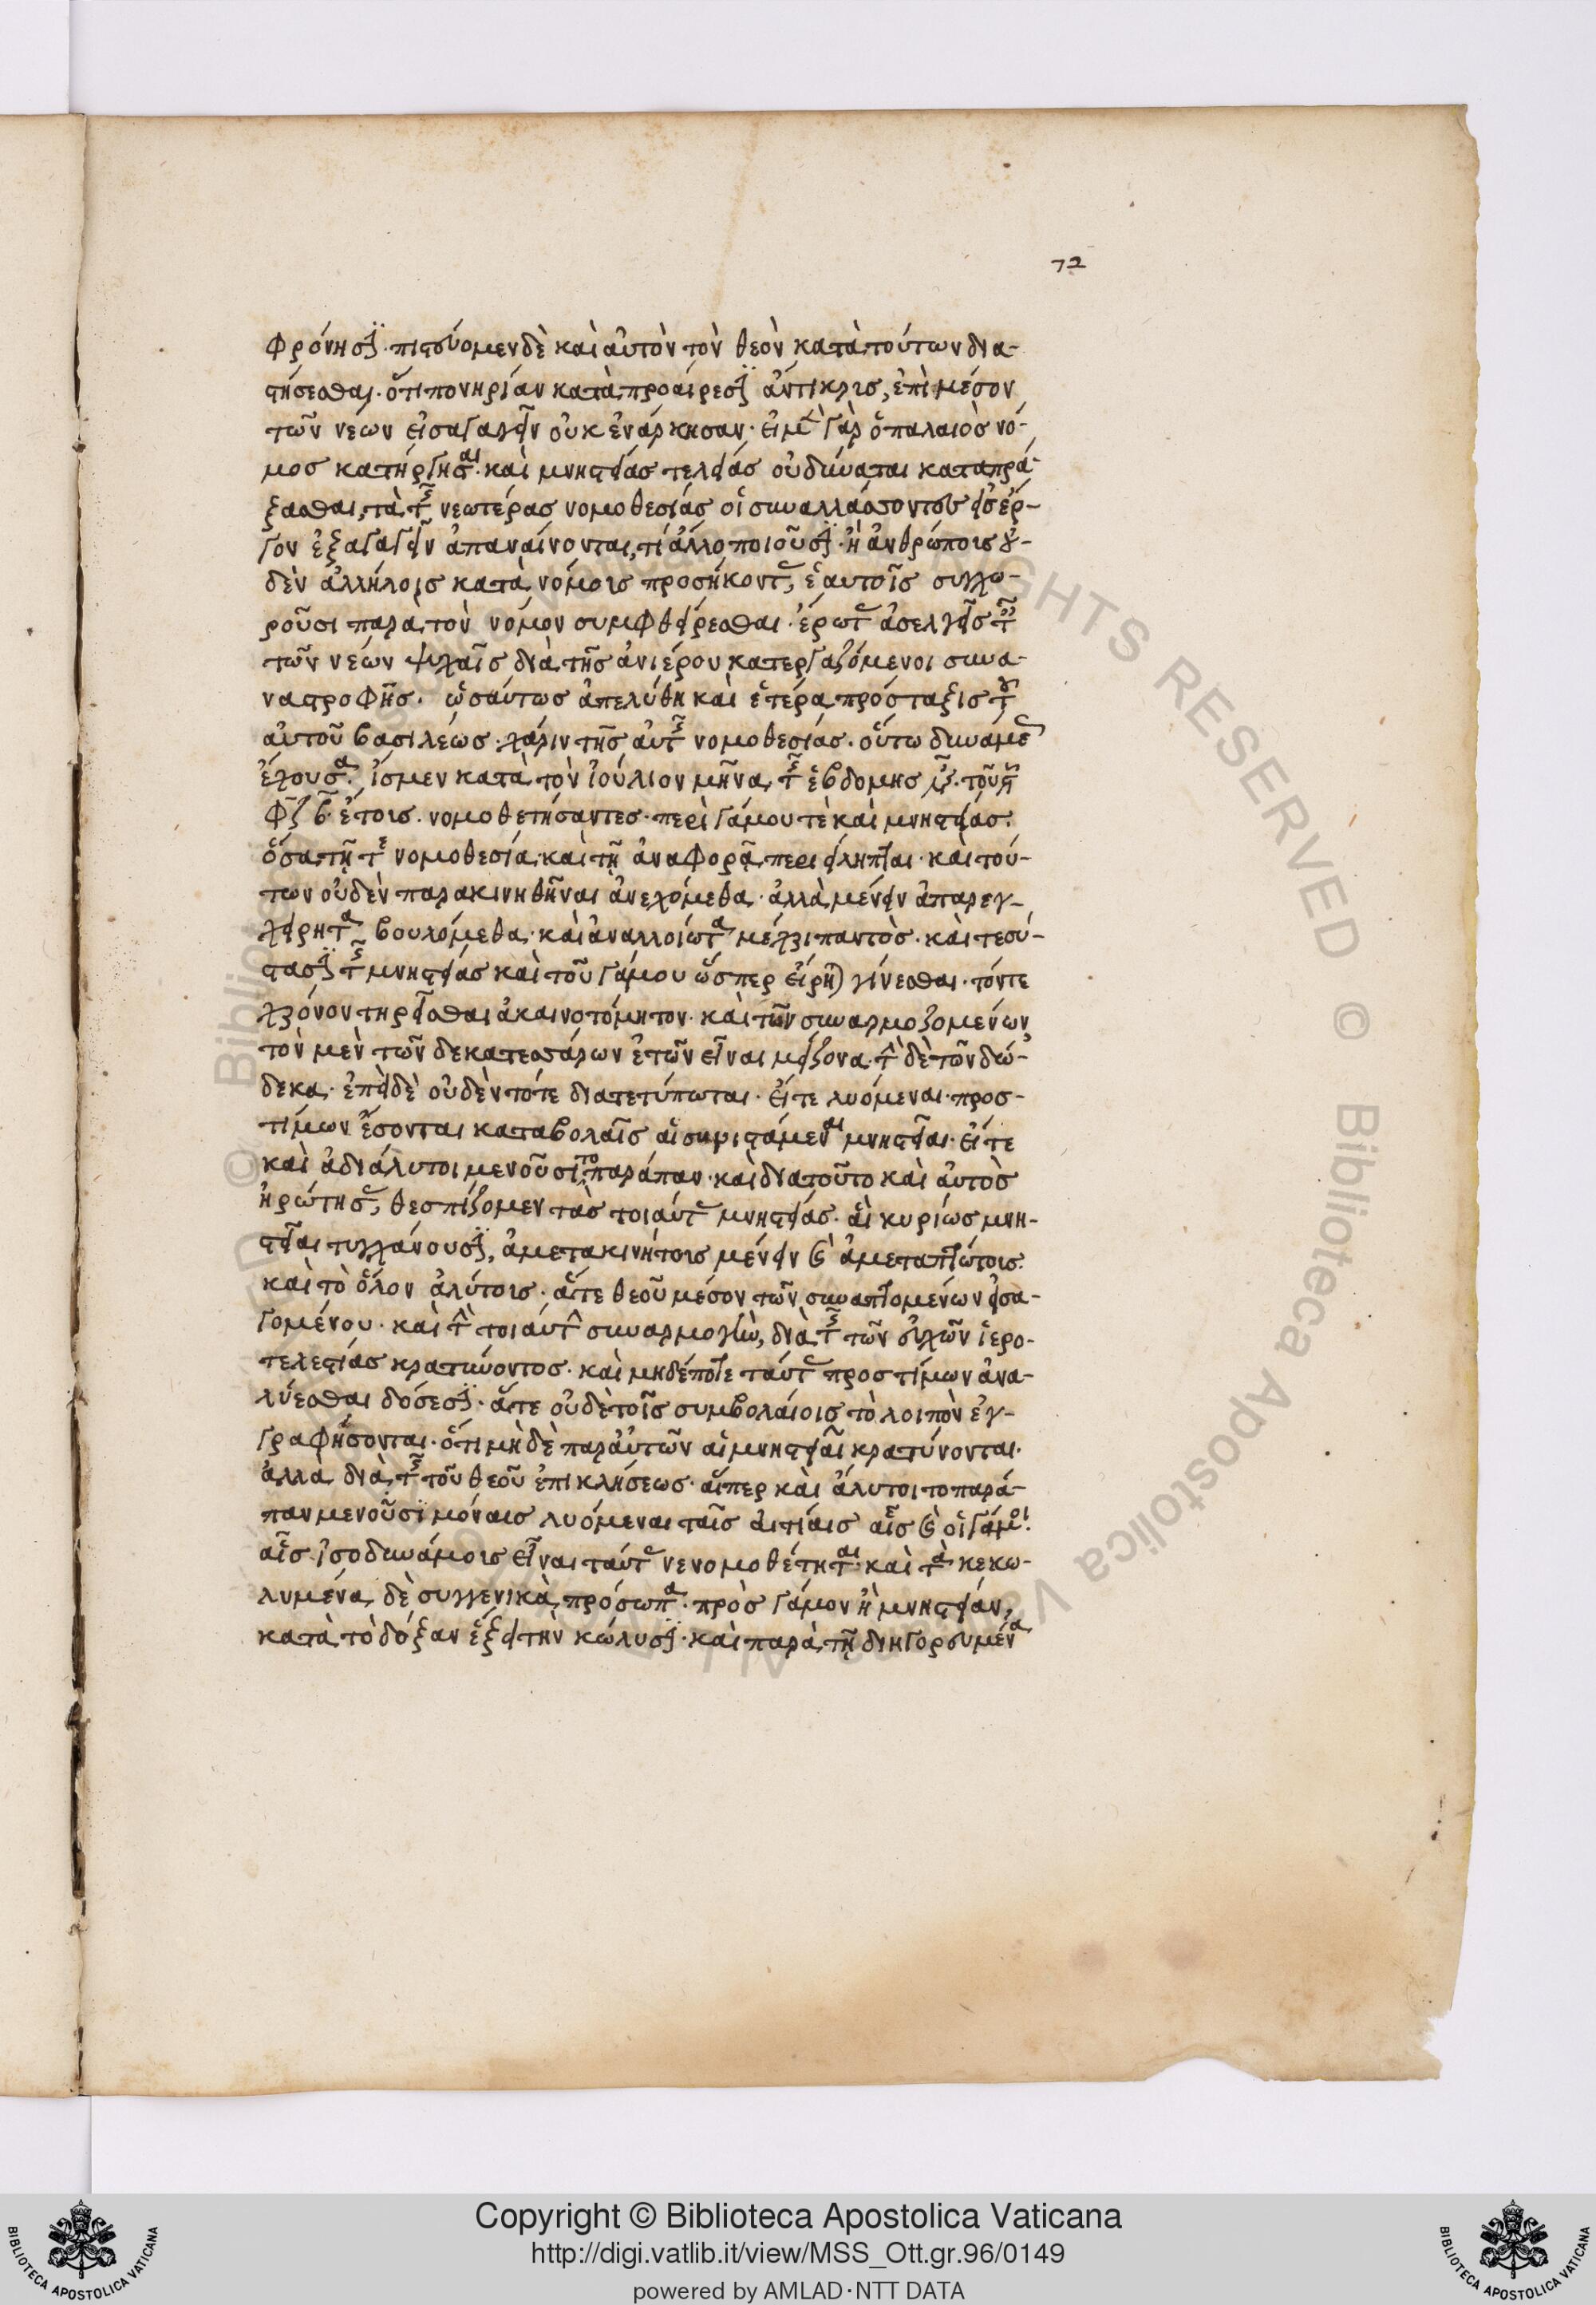 72
φρόνησιν· πιστεύομεν δὲ καὶ αὐτὸν τὸν θεὸν κατὰ τούτων δια-
στήσεσθαι· ὅτι πονηρίαν κατὰ προαίρεσιν ἄντικρις, ἐπὶ μέσον
τῶν νέων εἰσαγαγεῖν οὐκ ἐνάρκησαν· εἰ μὲν γὰρ ὁ παλαιὸς νό-
μος κατήργησται· καὶ μνηστείας τελείας οὐ δύναται καταπρά-
ξασθαι, τὰ τῆς νεωτέρας νομοθεσίας οἱ συναλλάσσοντες εἰς ἔρ-
γον ἐξαγαγεῖν ἀπαναίνονται, τί ἄλλο ποιοῦσιν· ἢ ἀνθρώποις οὐ-
δὲν ἀλλήλοις κατὰ νόμοις προσήκοντας, ἑαυτοῖς συγχω-
ροῦσι παρὰ τὸν νόμον συμφθείρεσθαι· ἔρωτας ἀσελγεῖς ταῖς
τῶν νέων ψυχαῖς διὰ τῆς ἀνιέρου κατεργαζόμενοι συνα-
ναστροφῆς. ὡσαύτως ἀπελύθη καὶ ἑτέρα πρόσταξις τοῦ
αὐτοῦ βασιλέως χάριν τῆς αὐτῆς νομοθεσίας. οὕτω δυνάμεως
ἔχουσα. ἴσμεν κατὰ τὸν ἰούλιον μῆνα τῆς ἑβδόμης τοῦ
ϛφϟβ ἔτοις. νομοθετήσαντες· περὶ γάμου τὲ καὶ μνηστείας.
ὅσα τῇ τε νομοθεσία καὶ τῇ ἀναφορᾷ περιείληπται· καὶ τού-
των οὐδὲν παρακινηθῆναι ἀνεχόμεθα· ἀλλὰ μένειν ἀπαρεγ-
χείρητα βουλόμεθα· καὶ ἀναλλοίωτα μέχρι παντὸς· καί τε σύ-
στασιν τῆς μνηστείας καὶ τοῦ γάμου ὥσπερ εἴρηται γίνεσθαι· τόν τε
χρόνον τηρεῖσθαι ἀκαινοτόμητον· καὶ τῶν συναρμοζομένων
τὸν μὲν τῶν δεκατεσσάρων ἐτῶν εἶναι μείζονα· τὴν δὲ τῶν δώ-
δεκα· ἐπεὶ δὲ οὐδὲν τότε διατετύπωται· εἴτε λυόμεναι· προσ-
τίμων ἔσονται καταβολαῖς αἱ συνιστάμεναι μνηστεῖαι· εἴτε
καὶ ἀδιάλυτοι μενοῦσι τοπαράπαν· καὶ διατοῦτο καὶ αὐτὸς
ἠρώτησας, θεσπίζομεν τὰς τοιαύτας μνηστείας· αἳ κυρίως μνη-
στεῖαι τυγχάνουσιν, ἀμετακινήτοις μένειν καὶ ἀμεταπτώτοις.
καὶ τὸ ὅλον ἀλύτοις· ἅτε θεοῦ μέσον τῶν συναπτομένων εἰσα-
γομένου· καὶ τὴν τοιαύτην συναρμογὴν, διὰ τῆς τῶν εὐχῶν ἱερο-
τελεστίας κρατύνοντος· καὶ μηδέποτε ταύτας προστίμων ἀνα-
λύεσθαι δόσεσιν· ἅτε οὐδὲ τοῖς συμβολαίοις τὸ λοιπὸν ἐγ-
γραφήσονται· ὅτι μὴ δὲ παρ αὐτῶν αἱ μνηστεῖαι κρατύνονται.
ἀλλὰ διὰ τῆς τοῦ θεοῦ ἐπικλήσεως· αἵπερ καὶ ἄλυτοι τοπαρά-
παν μενοῦσι μόναις λυόμεναι ταῖς αἰτίαις αἷς καὶ οἱ γάμοι.
αἷς ἰσοδυνάμοις εἶναι ταύτας νενομοθέτηται· καὶ τὰ κεκω-
λυμένα δὲ συγγενικὰ πρόσωπα· πρὸς γάμον ἢ μνηστείαν,
κατὰ τὸ δόξαν ἕξει τὴν κώλυσιν· καὶ παρὰ τῇ διηγορευμένα
Copyright © Biblioteca Apostolica Vaticana
http://digi.vatlib.it/view/MSS_Ott.gr.96/0149
powered by AMLAD·NTT DATA
BIBLIOTECA APOSTOLICA VATICANA
BIBLIOTECA APOSTOLICA VATICANA